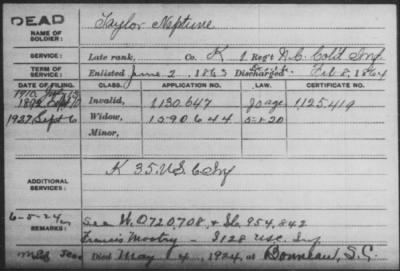 DEAD
NAME OF SOLDIER: Taylor Neptune
SERVICE: Late rank, Co. K 1 Reg't N.C. Col'd Inf
TERM OF SERVICE: Enlisted June 2, 1863 Discharged Feb 8, 1864
DATE OF FILING. CLASS. APPLICATION NO. LAW. CERTIFICATE NO.
Invalid, 1130.647 1125.419
1927 Sept 6 Widow, 1590644 5-1-20
Minor,
ADDITIONAL SERVICES: K 35 U.S.C Inf
6-5-24
REMARKS: See W.O 720,708, & 954,842
Francis - I 128 USC. Inf
Died May 4, 1924, at Bonneau, S.C.